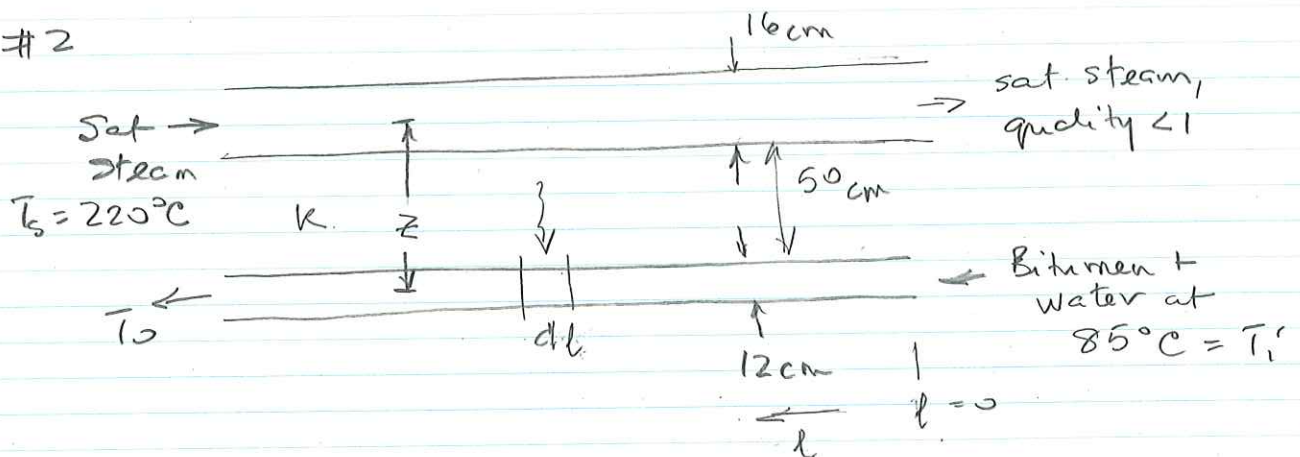 #2
16 cm
Sat →
steam
T_s = 220°C
→ sat. steam,
quality < 1
50 cm
K.
z
← Bitumen +
water at
85°C = T_i
T_o ←
dl
12 cm
l = 0
← l